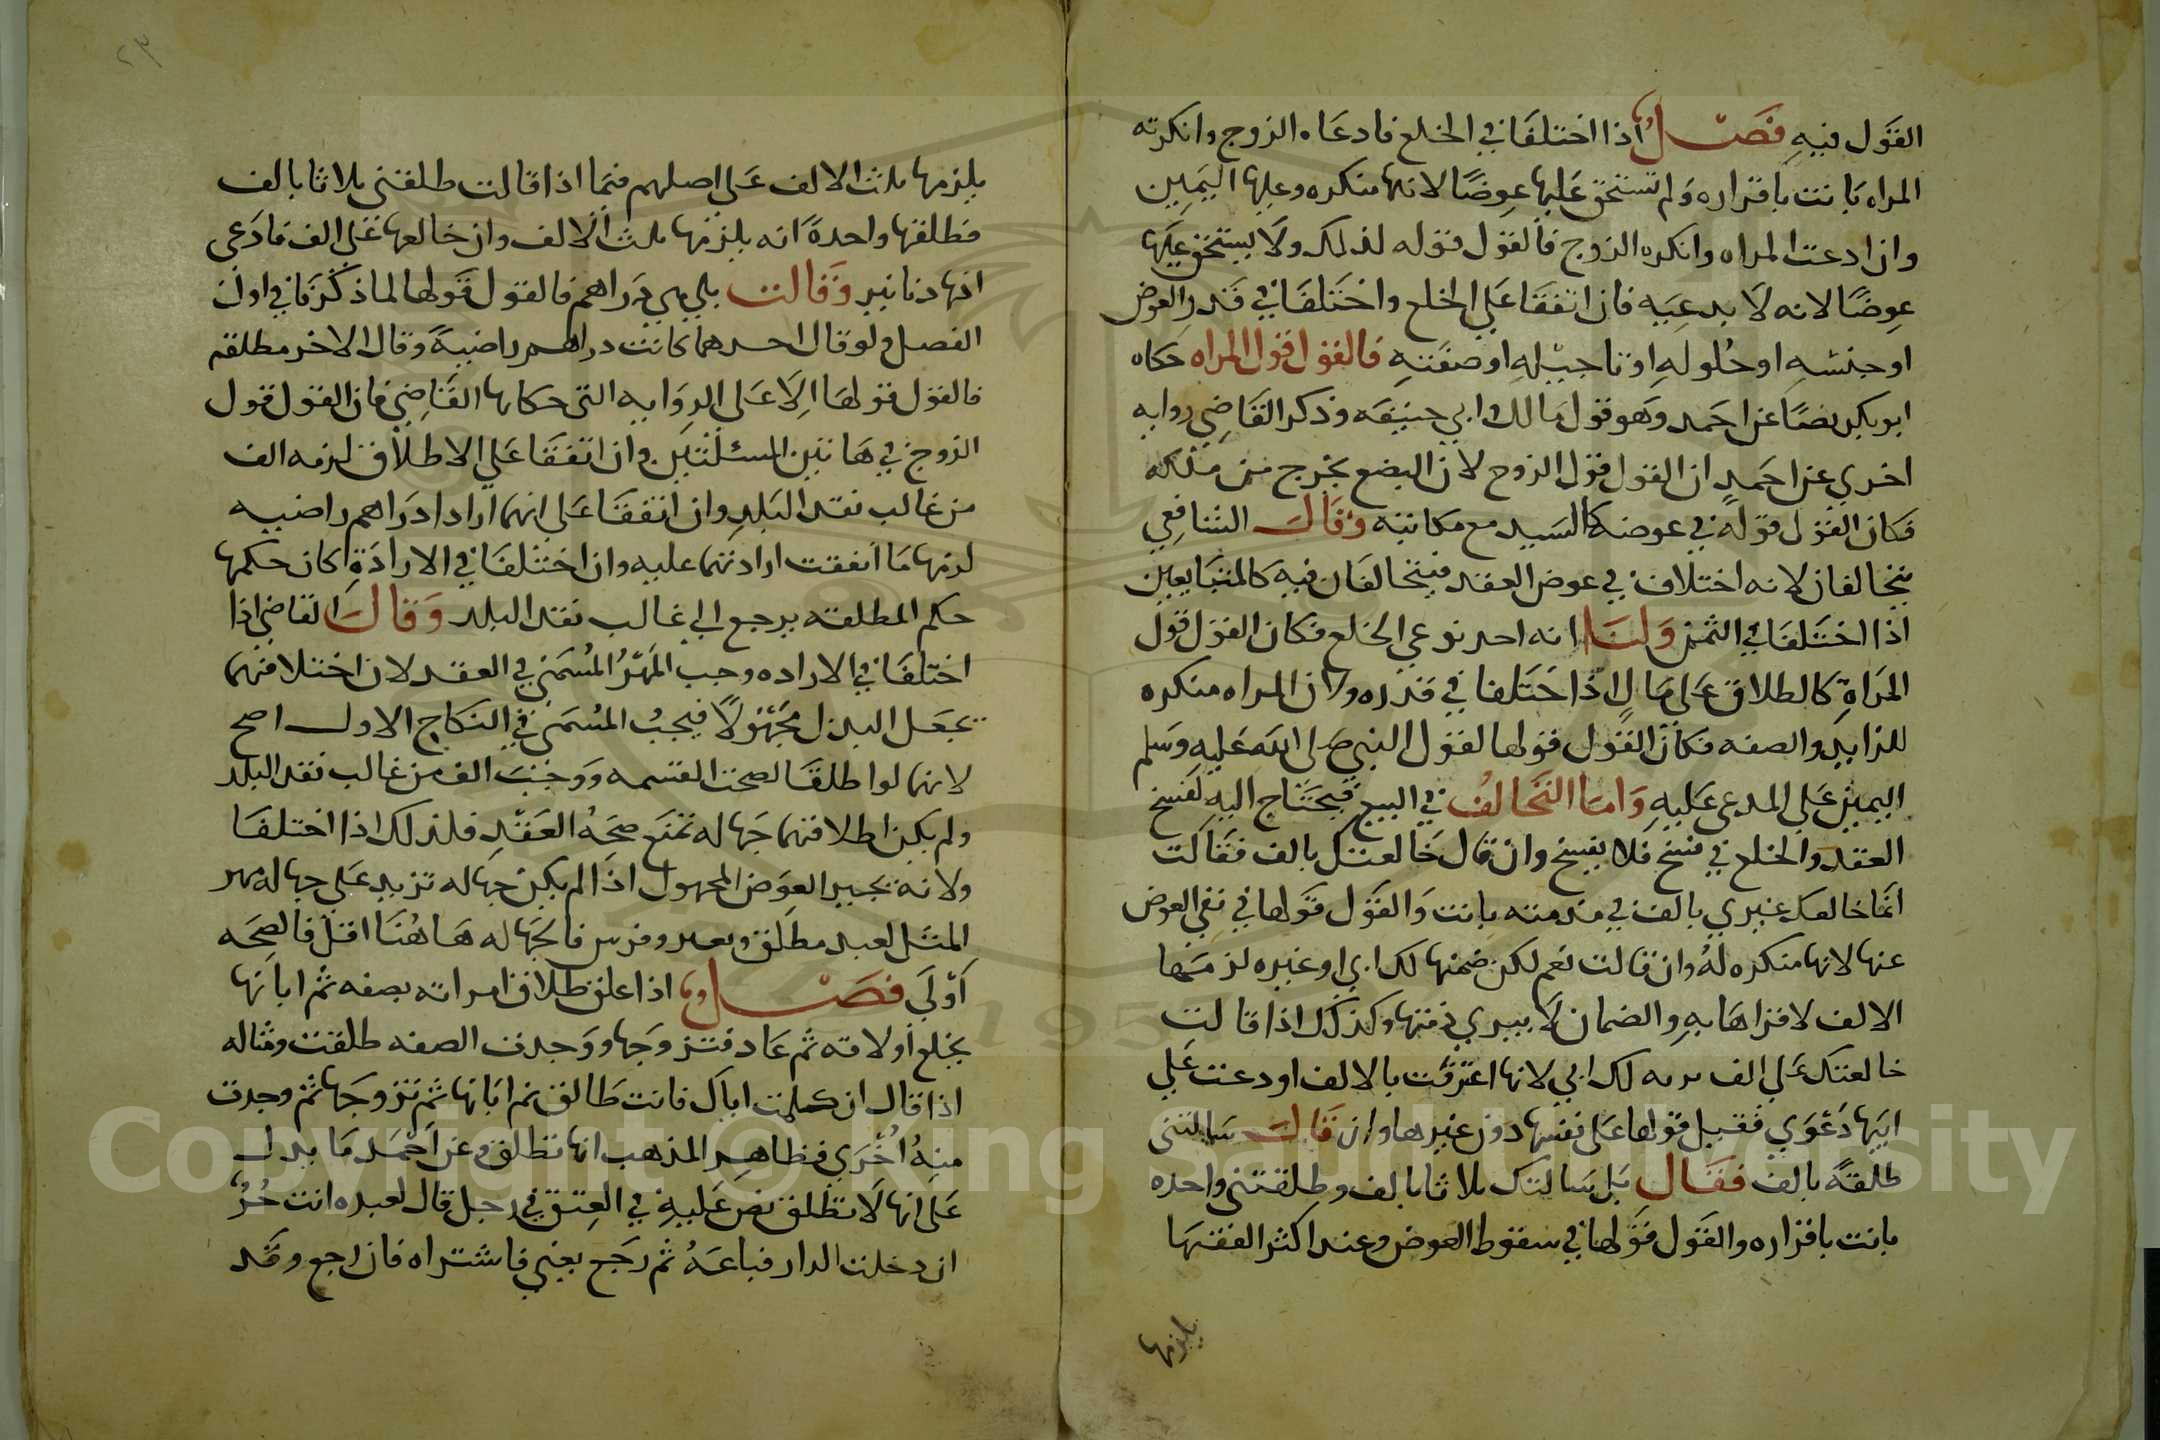 القول فيه فصل اذا اختلفا في الخلع فادعاه الزوج وانكرته
المراه بانت باقراره ولم تستحق عليها عوضا لانها منكره وعليها اليمين
وان ادعت المراه وانكره الزوج فالقول قوله لذلك ولا يستحق عليها
عوضا لانه لا يدعيه فان اتفقا على الخلع واختلفا في قدر العوض
او جنسه او حلوله او تاجيله او صفته فالقول قول المراه حكاه
ابو بكر نصا عن احمد وهو قول مالك وابي حنيفه وذكر القاضي روايه
اخري عن احمد ان القول قول الزوج لان البضع يخرج من ملكه
فكان القول قوله في عوضه كالسيد مع مكاتبه وقال الشافعي
يتحالفان لانه اختلاف في عوض العقد فيتحالفان فيه كالمتبايعين
اذا اختلفا في الثمن ولنا انه احد نوعي الخلع فكان القول قول
المراة كالطلاق على مال اذا اختلفا في قدره ولان المراه منكره
للزايد والصفه فكان القول قولها لقول النبي صلى الله عليه وسلم
اليمين على المدعى عليه واما التحالف في البيع فيحتاج اليه لفسخ
العقد والخلع في فسخ فلا يفسخ وان قال خالعتك بالف فقالت
انما خالعك غيري بالف في ذمته بانت والقول قولها في نفي العوض
عنها لانها منكره له وان قالت نعم لكن ضمنها لك ابي او غيره لزمتها
الالف لاقرارها به والضمان لا يبري ذمتها وكذلك اذا قالت
خالعتك على الف يزنه لك ابي لانها اعترفت بالالف وادعت على
ابيها دعوي فقبل قولها على نفسها دون غيرها وان قال سالتني
طلقة بالف فقال بل سالتك ثلاثا بالف وطلقتني واحده
بانت باقراره والقول قولها في سقوط العوض وعند اكثر الفقها
يلزمها
يلزمها ثلث الالف على اصلهم فيما اذا قالت طلقني ثلاثا بالف
فطلقها واحدة انه يلزمها ثلث الالف وان خالعها على الف فادعى
انها دنانير وقالت بلي هي دراهم فالقول قولها لما ذكرنا في اول
الفصل ولو قال احدهما كانت دراهم راضية وقال الاخر مطلقه
فالقول قولها الا على الروايه التي حكاها القاضي فان القول قول
الزوج في هاتين المسئلتين وان اتفقا على الاطلاق لزمه الف
من غالب نقد البلد وان اتفقا على انهما ارادا دراهم راضيه
لزمها ما اتفقت ارادتهما عليه وان اختلفا في الارادة كان حكمها
حكم المطلقه يرجع الى غالب نقد البلد وقال القاضي اذا
اختلفا في الاراده وجب المهر المسمى في العقد لان اختلافهما
يجعل البدل مجهولا فيجب المسمى في النكاح الاول اصح
لانهما لو اطلقا لصحت القسمه ووجب الف من غالب نقد البلد
ولم يكن اطلاقهما جهاله تمنع صحه العقد فلذلك اذا اختلفا
ولانه يجيز العوض المجهول اذا لم يكن جهاله تزيد على جهاله مهر
المثل لعبد مطلق وبعير وفرس فالجهاله هاهنا اقل فالصحه
اولى فصل اذا علق طلاق امراته بصفه ثم ابانها
بخلع او لاقه ثم عاد فتزوجها ووجدت الصفه طلقت ومثاله
اذا قال ان كلمت اباك فانت طالق ثم ابانها ثم تزوجها ثم وجدت
منه اخري فظاهر المذهب انها تطلق وعن احمد ما يدل
على انها لا تطلق نص عليه في العتق في رجل قال لعبده انت حر
ان دخلت الدار فباعه ثم رجع يعني فاشتراه فان رجع وقد